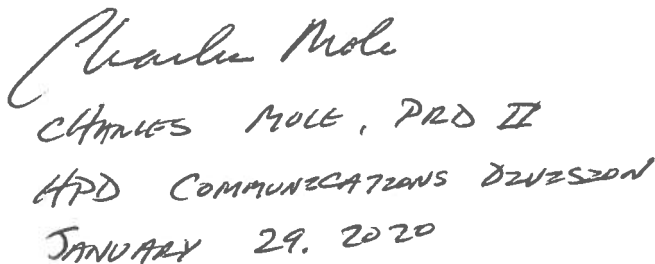 Charles Mole
CHARLES MOLE, PRD II
HPD COMMUNICATIONS DIVISION
JANUARY 29. 2020